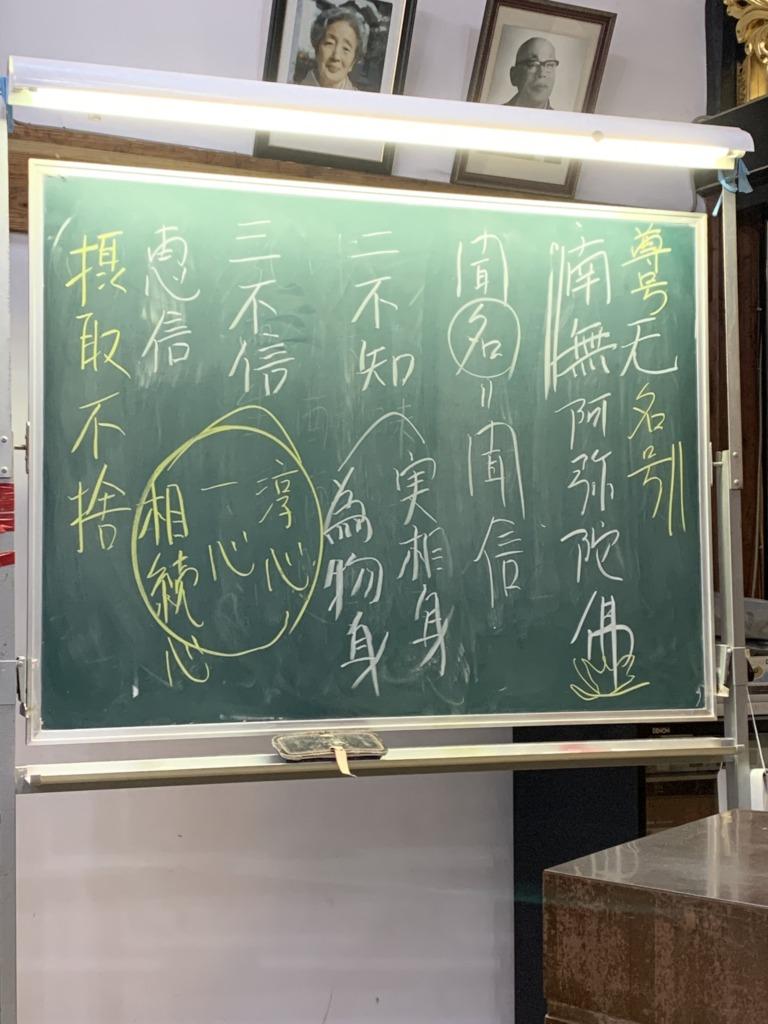 尊号
无
名号
南無阿弥陀佛
聞名=聞信
二不知
実相身
為物身
三不信
淳心
一心
相続心
恵信
摂取不捨
DENON